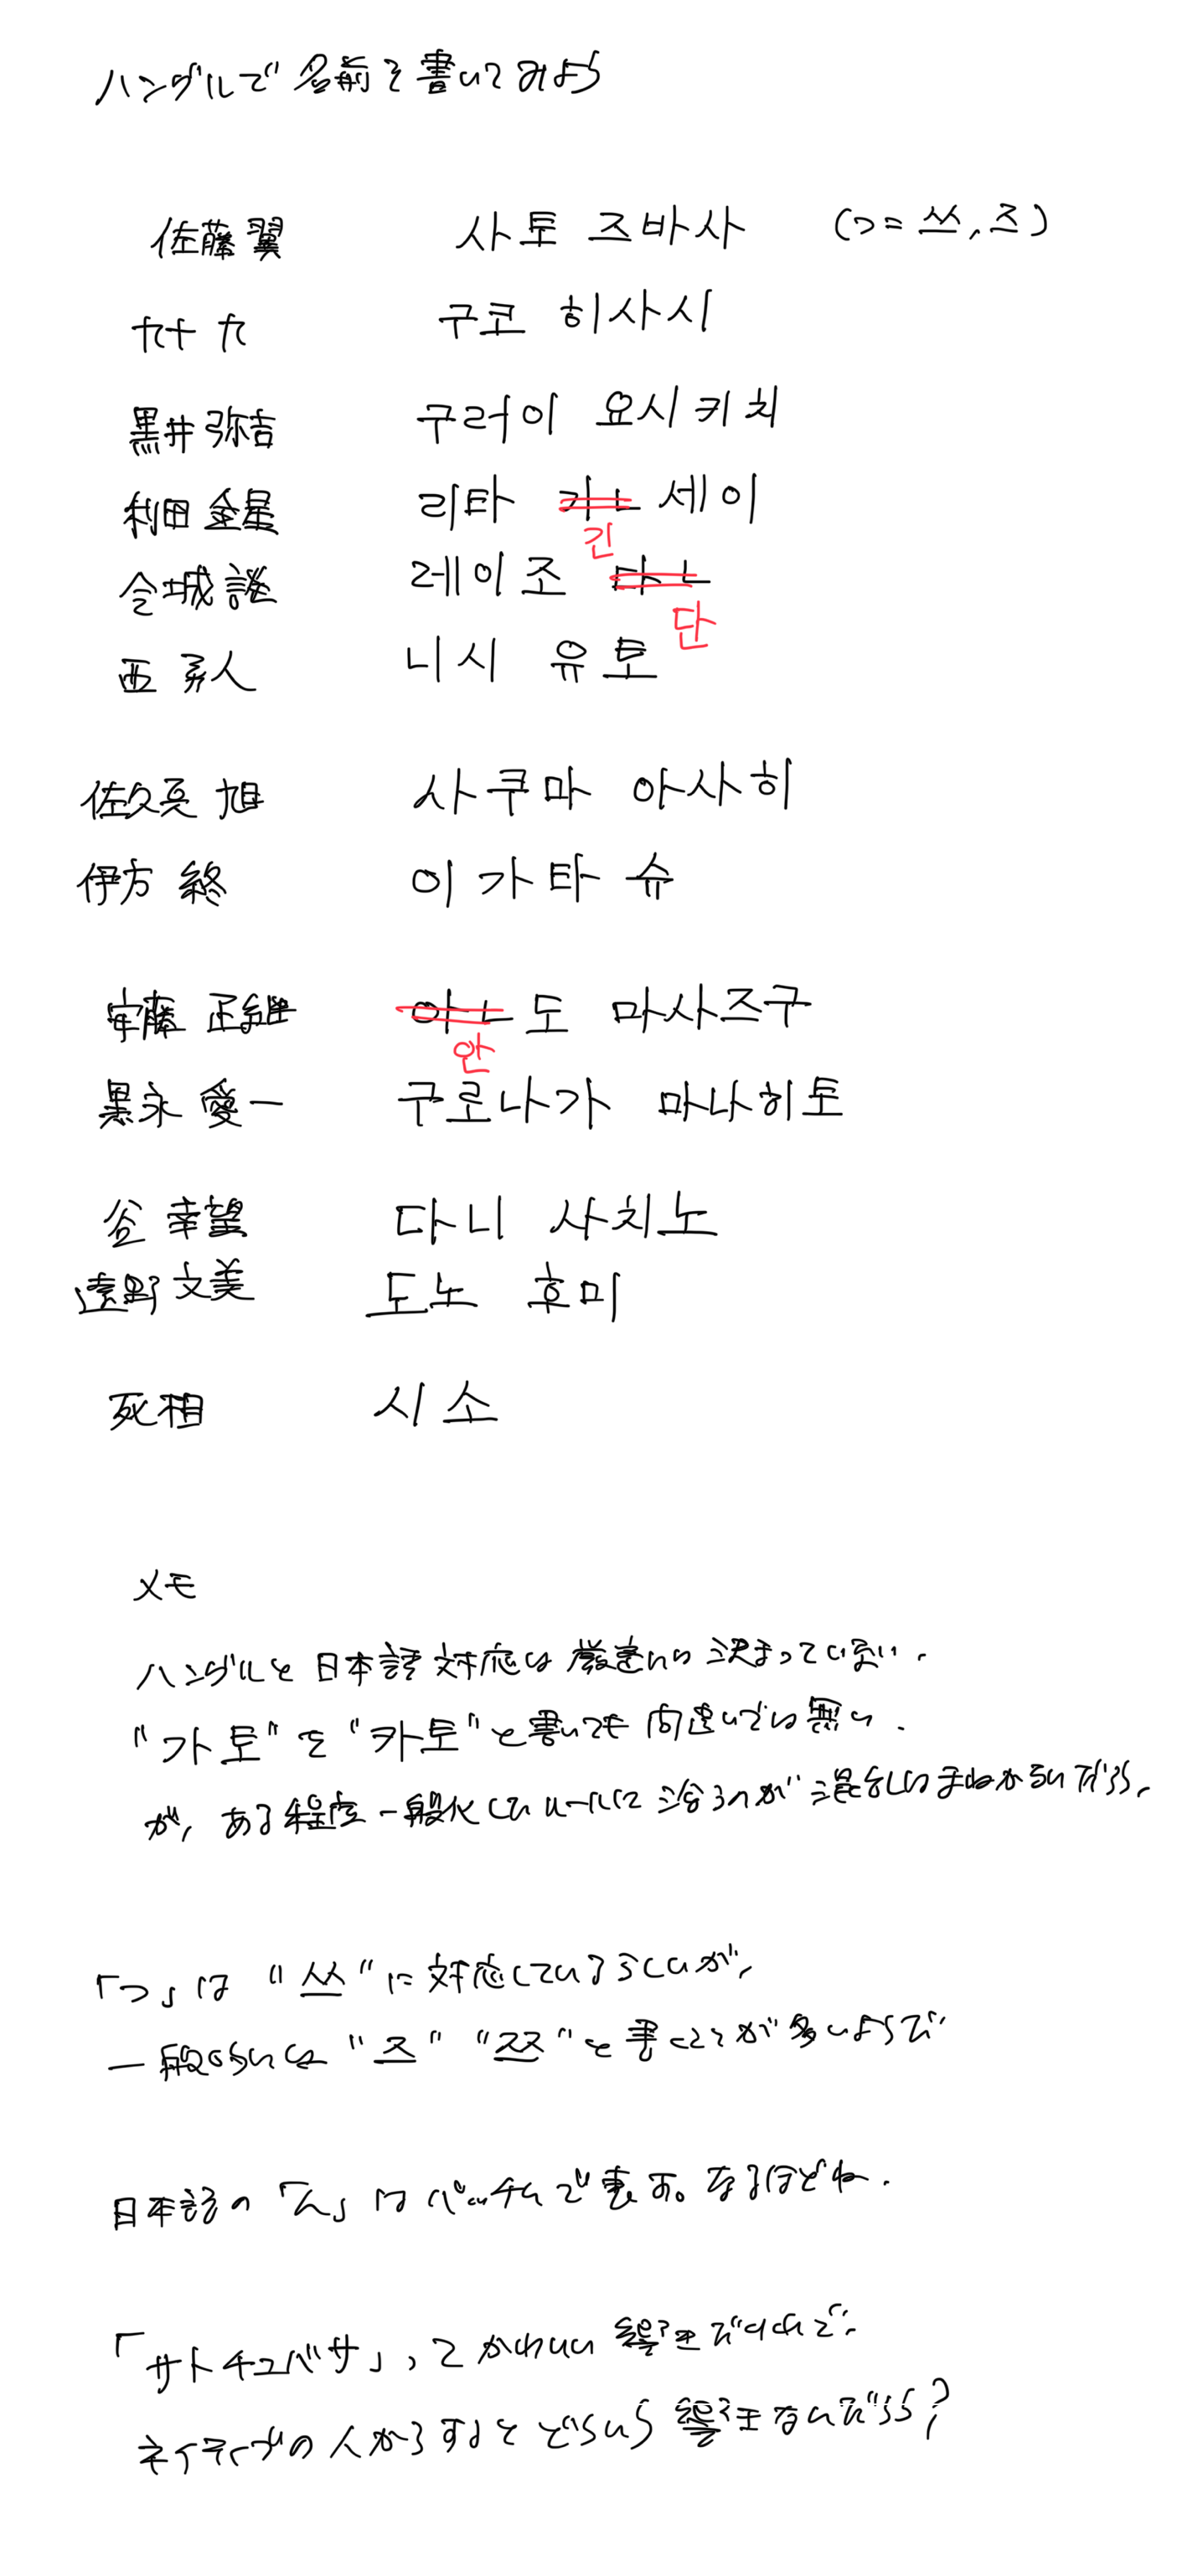 ハングルで名前を書いてみよう
佐藤翼 사토 즈바사 (つ=쓰,즈)
九十九 구코 히사시
黒井弥吉 구러이 요시키치
利田金星 리타 가ㄴ세이
긴
令城談 레이조 다ㄴ
단
西勇人 니시 유토
佐久間 旭 사쿠마 아사히
伊方 終 이가타 슈
安藤 正継 아ㄴ도 마사즈구
안
黒永 愛一 구로나가 마나히토
谷 幸望 다니 사치노
遠野文美 도노 후미
死相 시소
メモ
ハングルと日本語対応は厳密には決まっていない.
"가토"を"카토"と書いても間違いでは無い.
が,ある程度一般化したルールに沿うのが混乱はまねかないだろう.
「つ」は"쓰"に対応しているらしいが,
一般的には"즈""쯔"と書くことが多いようだ
日本語の「ん」はパッチムで表す。なるほどね.
「サトチュバサ」,ってかわいい響きだけれど.
ネイティブの人からするとどういう響きなんだろう?